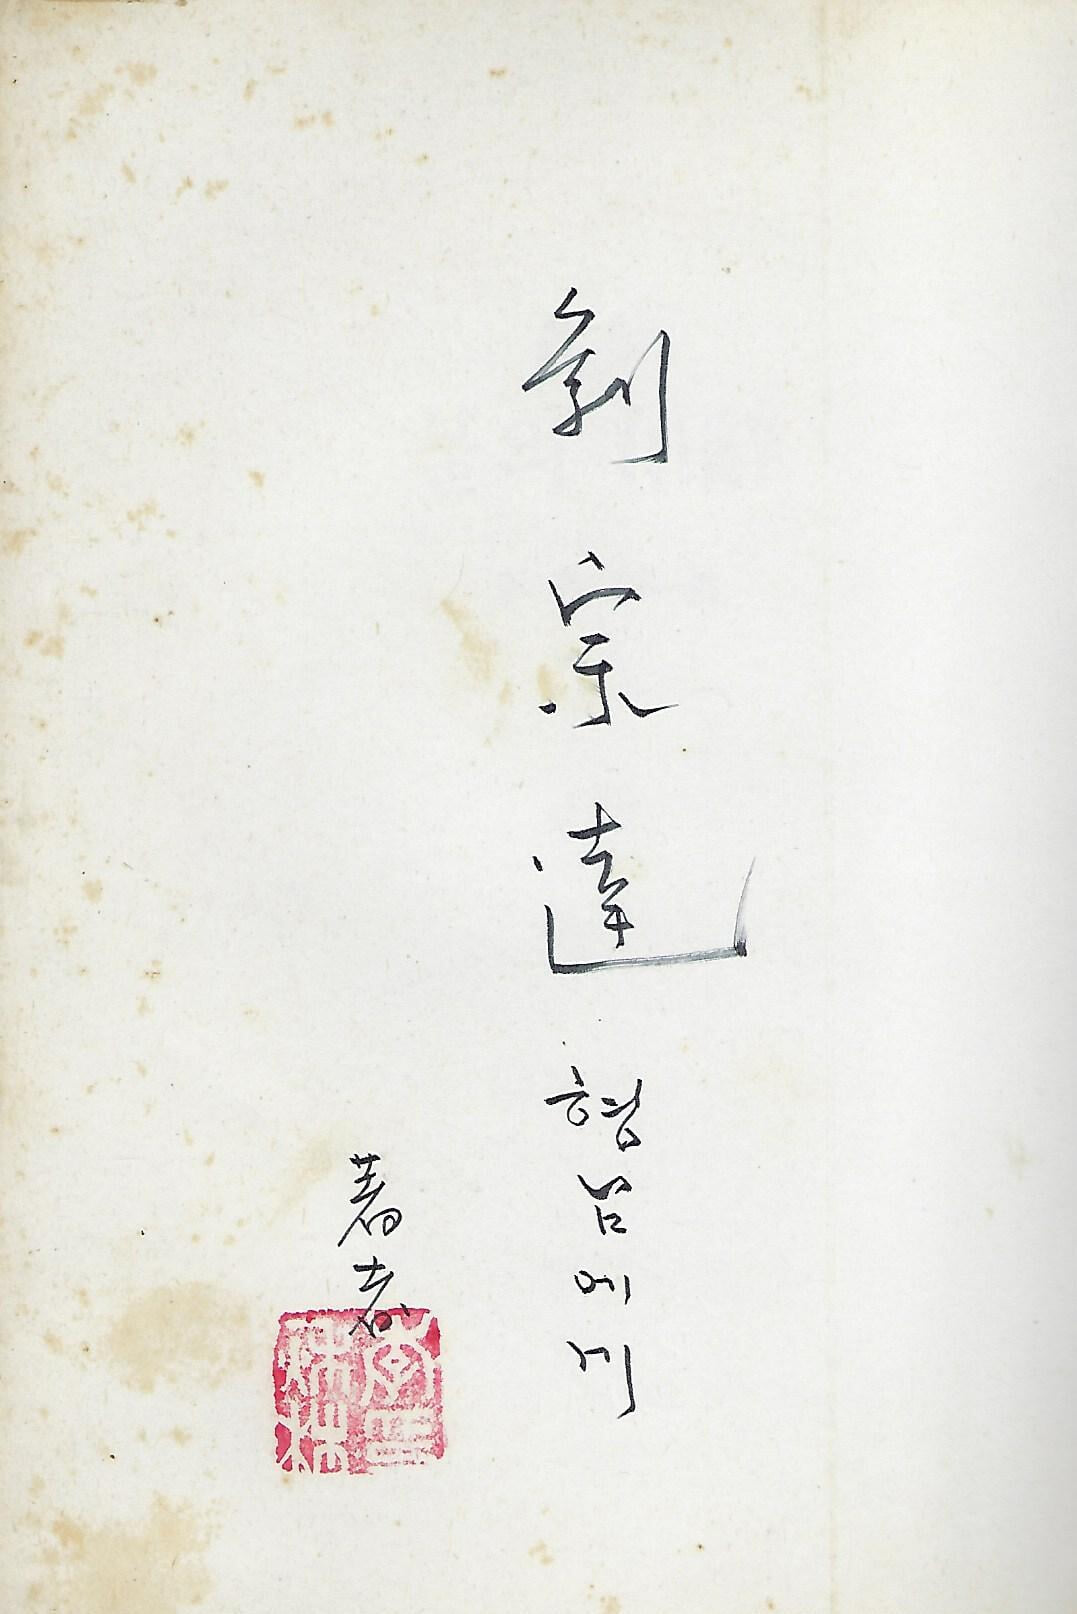 劉宗達 형님에게
著者